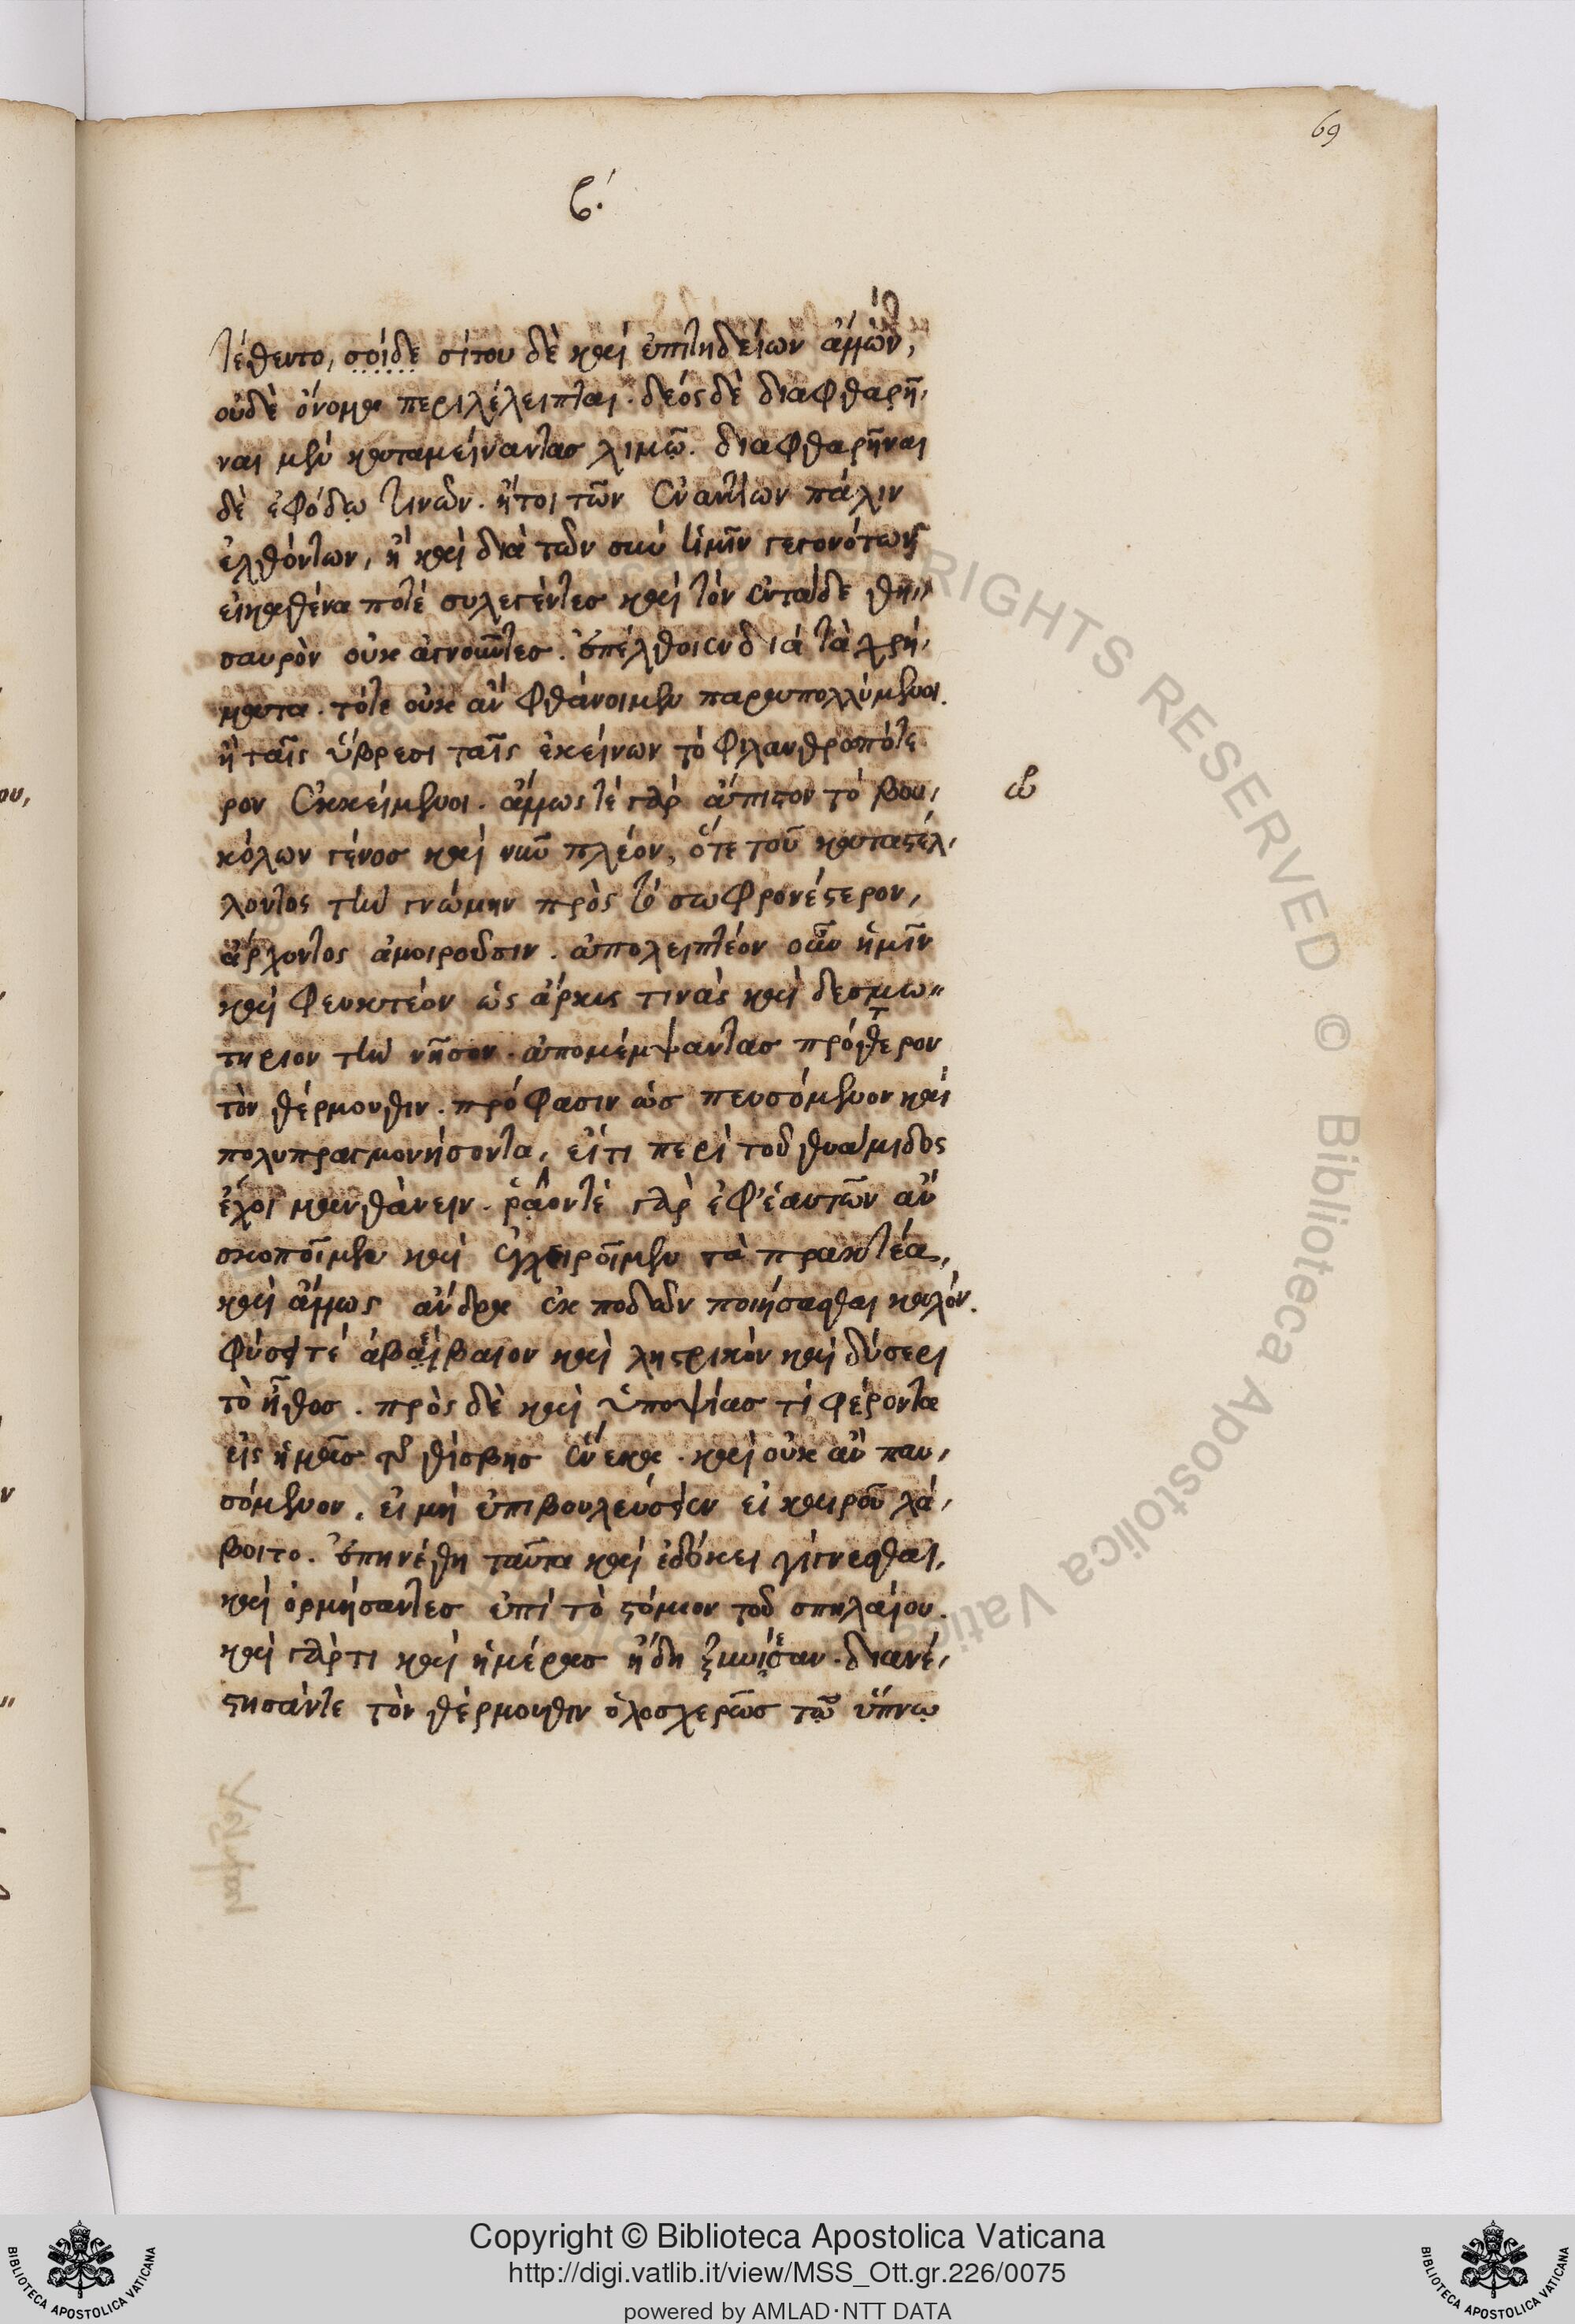 69
β.
τέθεντο, σοίδε σίτου δὲ καὶ ἐπιτηδείων ἄλλων,
οὐδὲ ὄνομα περιλέλειπται. δέος δὲ διαφθαρῆ,
ναι μὲν καταμείναντας λιμῷ. διαφθαρῆναι
δὲ ἐφόδῳ τινῶν. ἤτοι τῶν ἐναντίων πάλιν
ἐλθόντων, ἢ καὶ διὰ τῶν σὺν ἡμῖν γεγονότων
εἰ καθένα ποτὲ συλεγέντες καὶ τὸν ἐνταῦθα θη,,
σαυρὸν οὐκ ἀγνοοῦντες. ἐπέλθοιεν διὰ τὰ χρή,
ματα. τότε οὐκ ἂν φθάνοιμεν παραπολλύμενοι.
ἢ ταῖς ὕβρεσι ταῖς ἐκείνων τὸ φιλανθροπότε
ρον ἐκκείμενοι. ἄλλως τὲ γὰρ ἄπιστον τὸ βου,
κόλων γένος καὶ νῦν πλέον, ὅτε τοῦ καταστέλ,
λοντος τὴν γνώμην πρὸς τὸ σωφρονέστερον,
ἄρχοντος ἀμοιροῦσιν. ἀπολειπτέον οὖν ἡμῖν
καὶ φευκτέον ὡς ἄρκυς τινὰς καὶ δεσμω,,
τηριον τὴν νῆσον. ἀπομέμψαντας πρότερον
τὸν θέρμουθιν. πρόφασιν ὡς πευσόμενον καὶ
πολυπραγμονήσοντα, εἴτι περὶ τοῦ θυάμιδος
ἔχοι μανθάνειν. ῥᾷον τὲ γὰρ ἐφ' ἑαυτῶν ἂν
σκοποῖμεν καὶ ἐγχειροῖμεν τὰ πρακτέα,
καὶ ἄλλως ἄνδρα ἐκ ποδῶν ποιήσασθαι καλόν.
φύσει τὲ ἀβαίβαιον καὶ λῃστρικὸν καὶ δύσερι
τὸ ἦθος. πρὸς δὲ καὶ ὑποψίας τὶ φέροντα
εἰς ἡμᾶς τῆς θίσβης ἕνεκα. καὶ οὐκ ἂν παυ,
σόμενον, εἰ μὴ ἐπιβουλεύσειεν εἰ καιροῦ λά,
βοιτο. ἐπηνέθη ταῦτα καὶ ἐδόκει γίγνεσθαι,
καὶ ὁρμήσαντες ἐπὶ τὸ στόμιον τοῦ σπηλαίου.
καὶ γὰρ τι καὶ ἡμέρας ἤδη ξυνίεσαν. διανέ,
στησάντε τὸν θέρμουθιν ὁλοσχερῶς τῷ ὕπνῳ
Copyright © Biblioteca Apostolica Vaticana
http://digi.vatlib.it/view/MSS_Ott.gr.226/0075
powered by AMLAD·NTT DATA